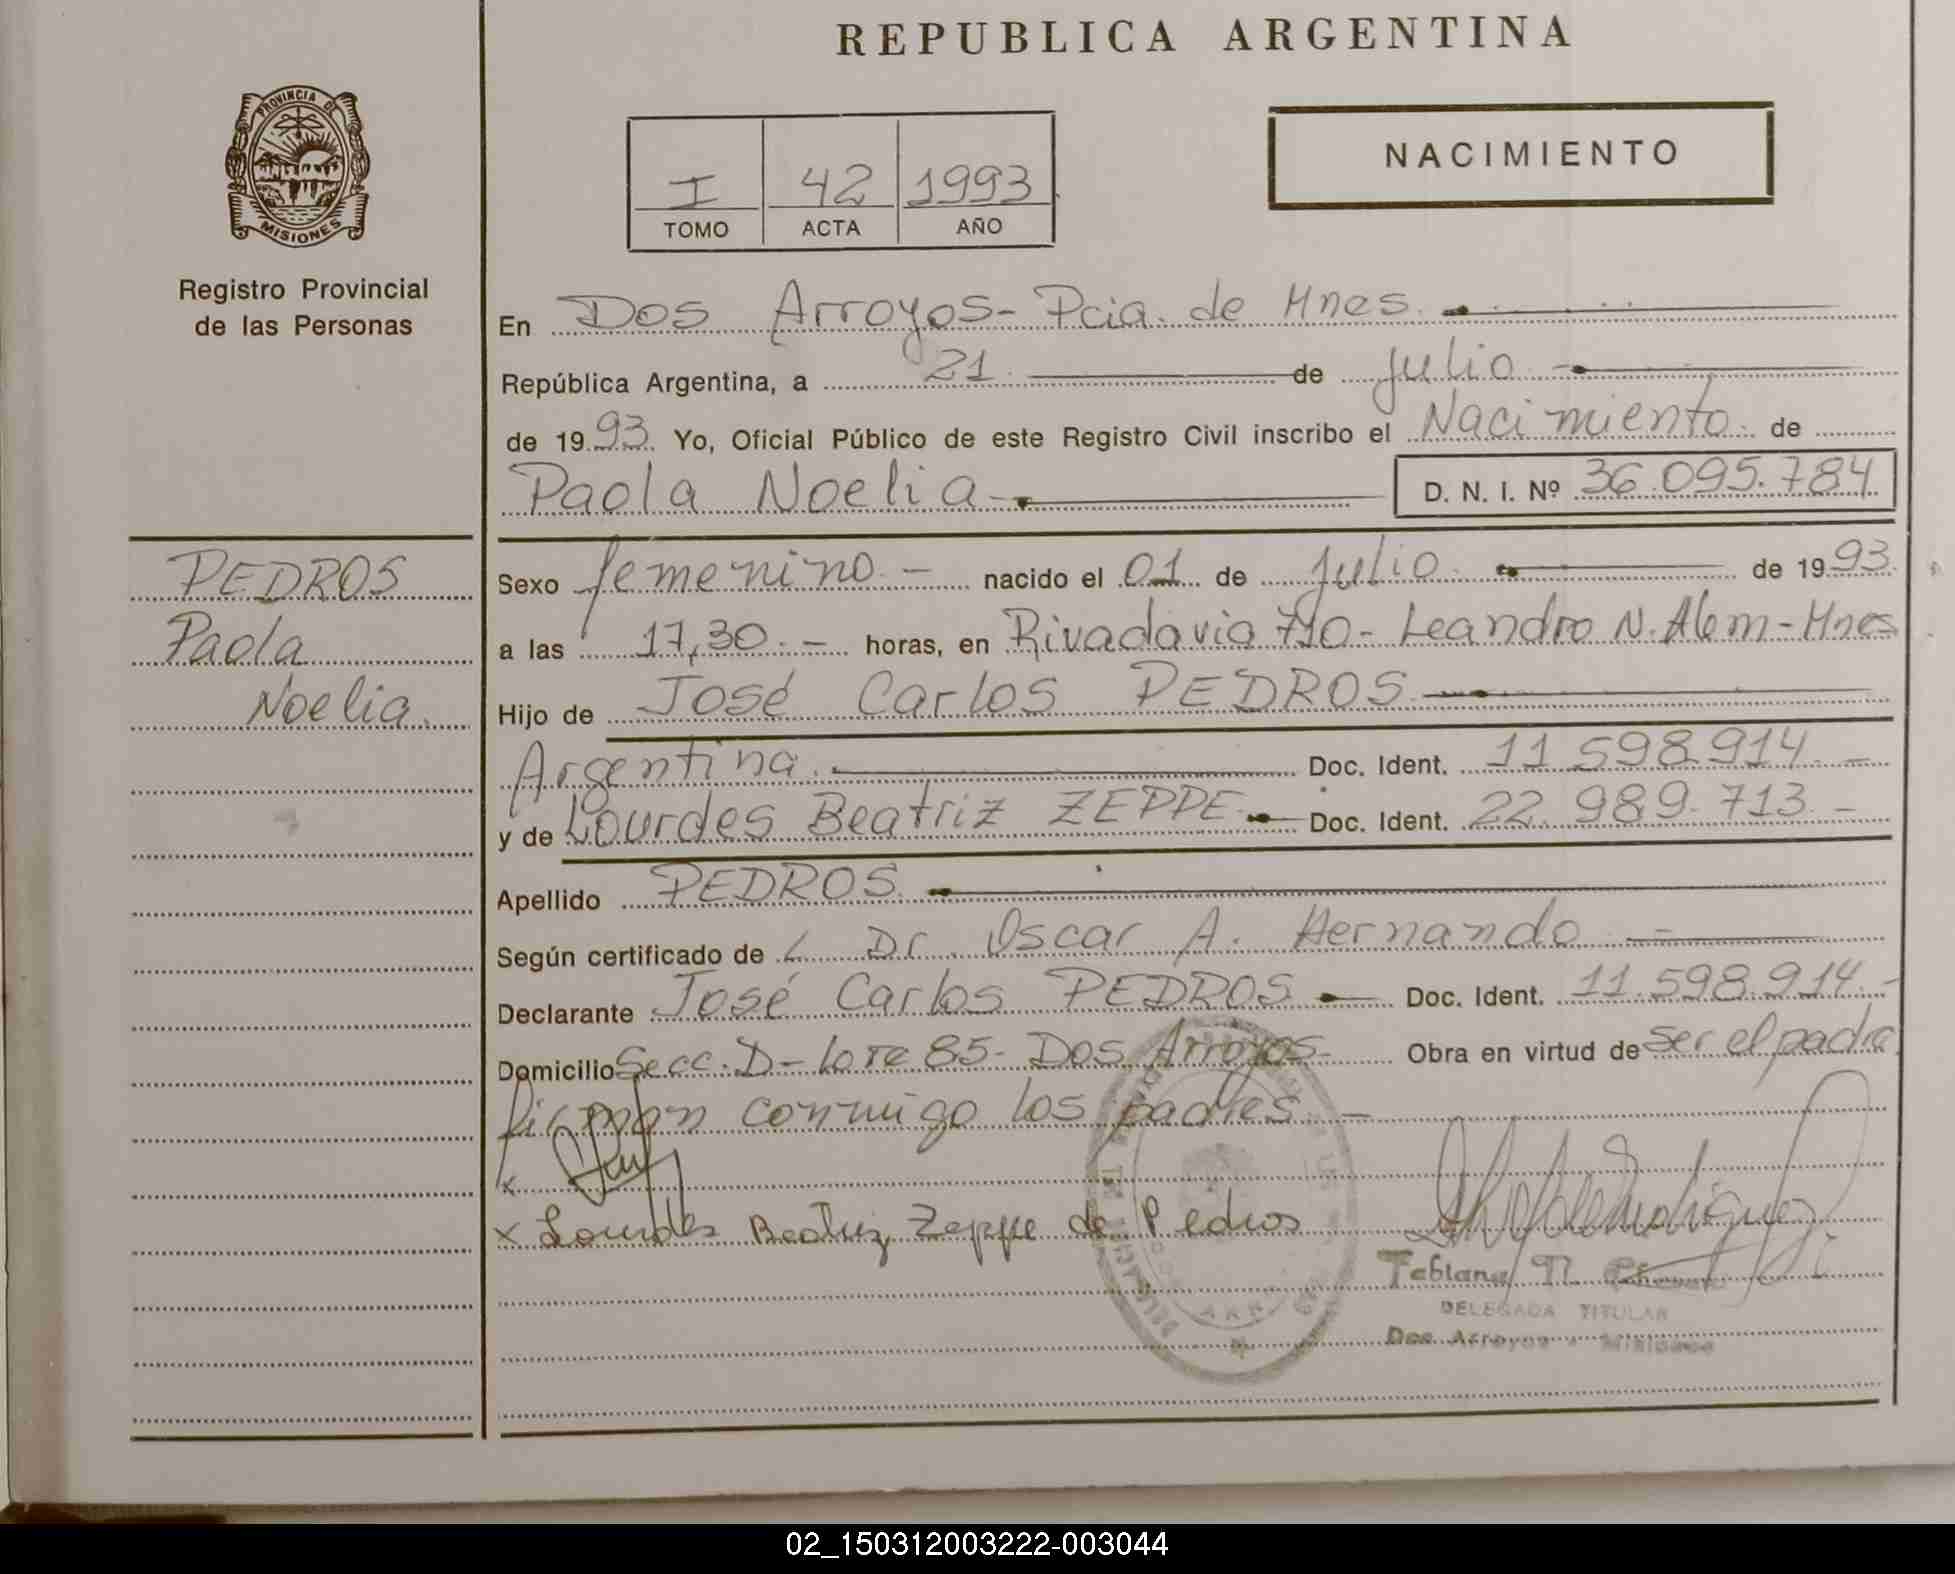 REPUBLICA ARGENTINA
PROVINCIA DE
MISIONES
Registro Provincial
de las Personas
I 42 1993
TOMO ACTA AÑO
NACIMIENTO
En Dos Arroyos - Pcia. de Mnes.
República Argentina, a 21 de julio
de 1993. Yo, Oficial Público de este Registro Civil inscribo el Nacimiento de
Paola Noelia D. N. I. Nº 36.095.784
PEDROS
Paola
Noelia.
Sexo femenino. - nacido el 01 de julio de 1993.
a las 17,30. - horas, en Rivadavia 710 - Leandro N. Alem - Mnes
Hijo de José Carlos PEDROS
Argentina. Doc. Ident. 11.598.914. -
y de Lourdes Beatriz ZEPPE - Doc. Ident. 22.989.713. -
Apellido PEDROS.
Según certificado de Dr. Oscar A. Hernando -
Declarante José Carlos PEDROS - Doc. Ident. 11.598.914. -
Domicilio Secc. D - lote 85 - Dos Arroyos - Obra en virtud de ser el padre
firman conmigo los padres. -
x
x Lourdes Beatriz Zeppe de Pedros
Fabiana
DELEGADA TITULAR
Dos Arroyos - Misiones
02_150312003222-003044